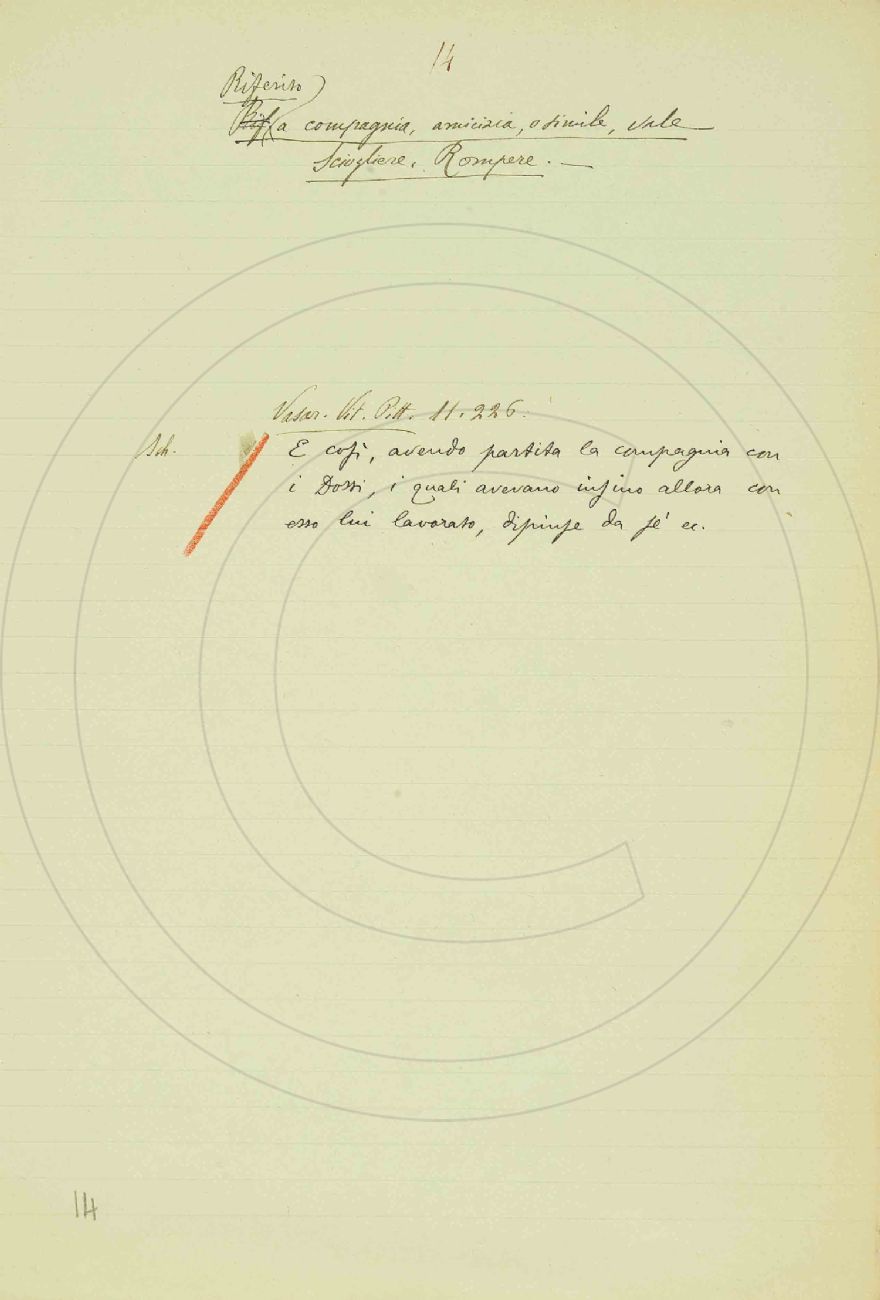 14
Riferito
Rif. a compagnia, amicizia, o simile, vale
Sciogliere, Rompere. —
Vasar. Vit. Pitt. 11. 226:
Sch.
E così, avendo partita la compagnia con
i Dossi, i quali avevano insino allora con
esso lui lavorato, dipinse da sé ec.
14